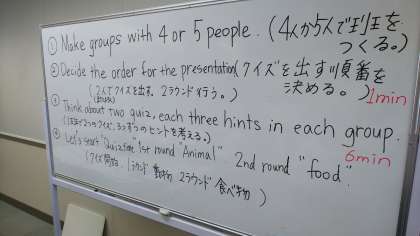 ① Make groups with 4 or 5 people. (4人から5人で班を
つくる。)
② Decide the order for the presentation (クイズを出す順番を
決める。)
(2人でクイズを出す。2ラウンド行う。)
1min
③ Think about two quiz, each three hints in each group.
つのクイズ、3つずつのヒントを考える。)
6min
④ Let's start "Quiz time" 1st round "Animal" 2nd round "food".
(クイズ開始 1ラウンド 動物 2ラウンド 食べ物)